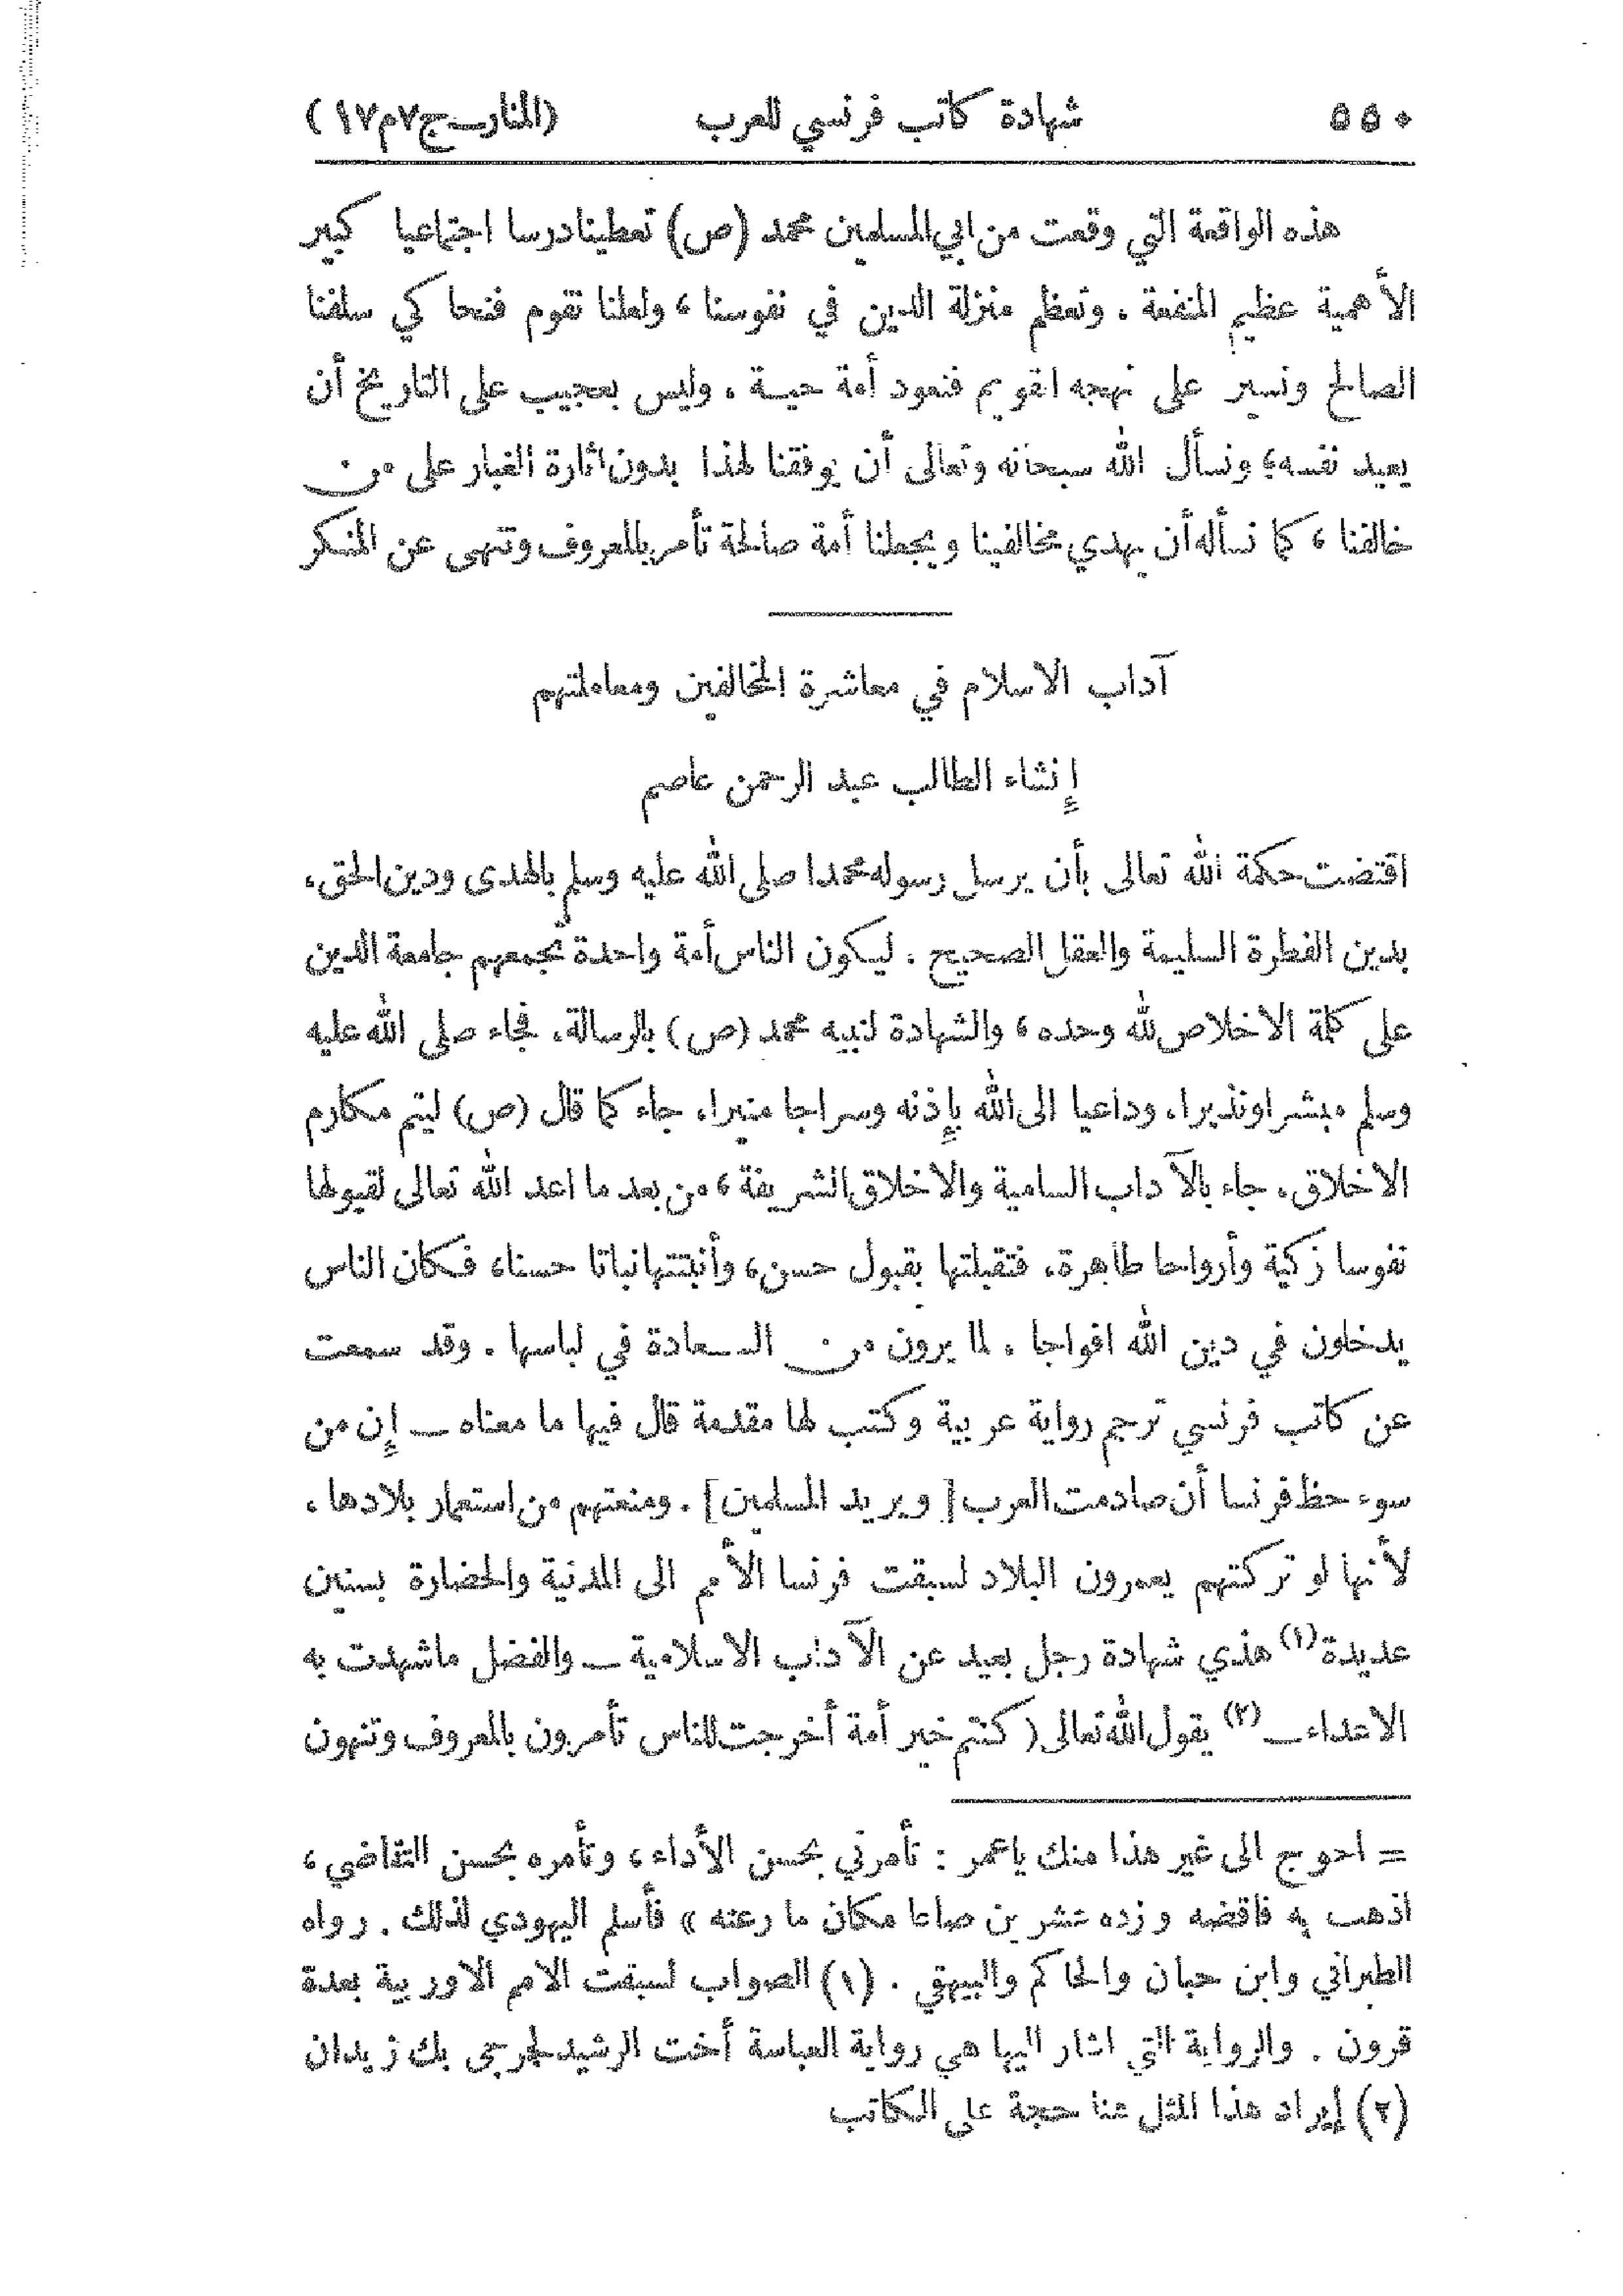 ٥٥٠ شهادة كاتب فرنسي للعرب (المنار ـ ج٧م١٧)
هذه الواقعة التي وقعت من ابي المسلمين محمد (ص) تعطينا درسا اجتماعيا كبير
الأهمية عظيم المنفعة . وتعظم منزلة الدين في نفوسنا ، ولعلنا نقوم فننحا كي سلفنا
الصالح ونسير على نهجه القويم فنعود أمة حية . وليس بعجيب على التاريخ أن
يعيد نفسه؛ ونسأل الله سبحانه وتعالى أن يوفقنا لهذا بدون اثارة الغبار على من
خالفنا ، كما نسأله أن يهدي مخالفينا ويجعلنا أمة صالحة تأمر بالمعروف وتنهى عن المنكر
آداب الاسلام في معاشرة المخالفين ومعاملتهم
إنشاء الطالب عبد الرحمن عاصم
اقتضت حكمة الله تعالى بأن يرسل رسوله محمدا صلى الله عليه وسلم بالهدى ودين الحق،
بدين الفطرة السليمة والعقل الصحيح . ليكون الناس أمة واحدة تجمعهم جامعة الدين
على كلمة الاخلاص لله وحده ، والشهادة لنبيه محمد (ص) بالرسالة. فجاء صلى الله عليه
وسلم مبشرا ونذيرا. وداعيا الى الله بإذنه وسراجا منيرا. جاء كما قال (ص) ليتم مكارم
الاخلاق. جاء بالآداب السامية والاخلاق الشريفة ، من بعد ما اعد الله تعالى لقبولها
نفوسا زكية وأرواحا طاهرة. فتقبلتها بقبول حسن، وأنبتتها نباتا حسنا، فكان الناس
يدخلون في دين الله افواجا . لما يرون من السعادة في لباسها . وقد سمعت
عن كاتب فرنسي ترجم رواية عربية وكتب لها مقدمة قال فيها ما معناه ـ إن من
سوء حظ فرنسا أن صادمت العرب [ ويريد المسلمين ] . ومنعتهم من استعمار بلادها .
لأنها لو تركتهم يعمرون البلاد لسبقت فرنسا الأمم الى المدنية والحضارة بسنين
عديدة(١) هذي شهادة رجل بعيد عن الآداب الاسلامية ـ والفضل ماشهدت به
الاعداء ـ(٢) يقول الله تعالى ( كنتم خير أمة أخرجت للناس تأمرون بالمعروف وتنهون
= احوج الى غير هذا منك ياعمر : تأمرني بحسن الأداء ، وتأمره بحسن التقاضي ،
اذهب به فاقضه وزده عشرين صاعا مكان ما رعته » فأسلم اليهودي لذلك . رواه
الطبراني وابن حبان والحاكم والبيهقي . (١) الصواب لسبقت الامم الاوربية بعدة
قرون . والرواية التي اشار اليها هي رواية العباسة أخت الرشيد لجرجي بك زيدان
(٢) إيراد هذا المثل هنا حجة على الكاتب